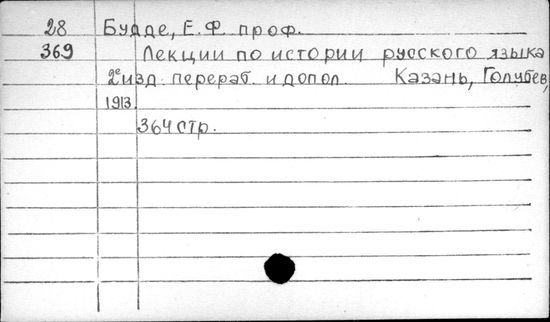 28 Будде, Е.Ф. проф.
369 Лекции по истории русского языка
2е изд. перераб. и допол. Казань, Голубев,
1913.
364 стр.